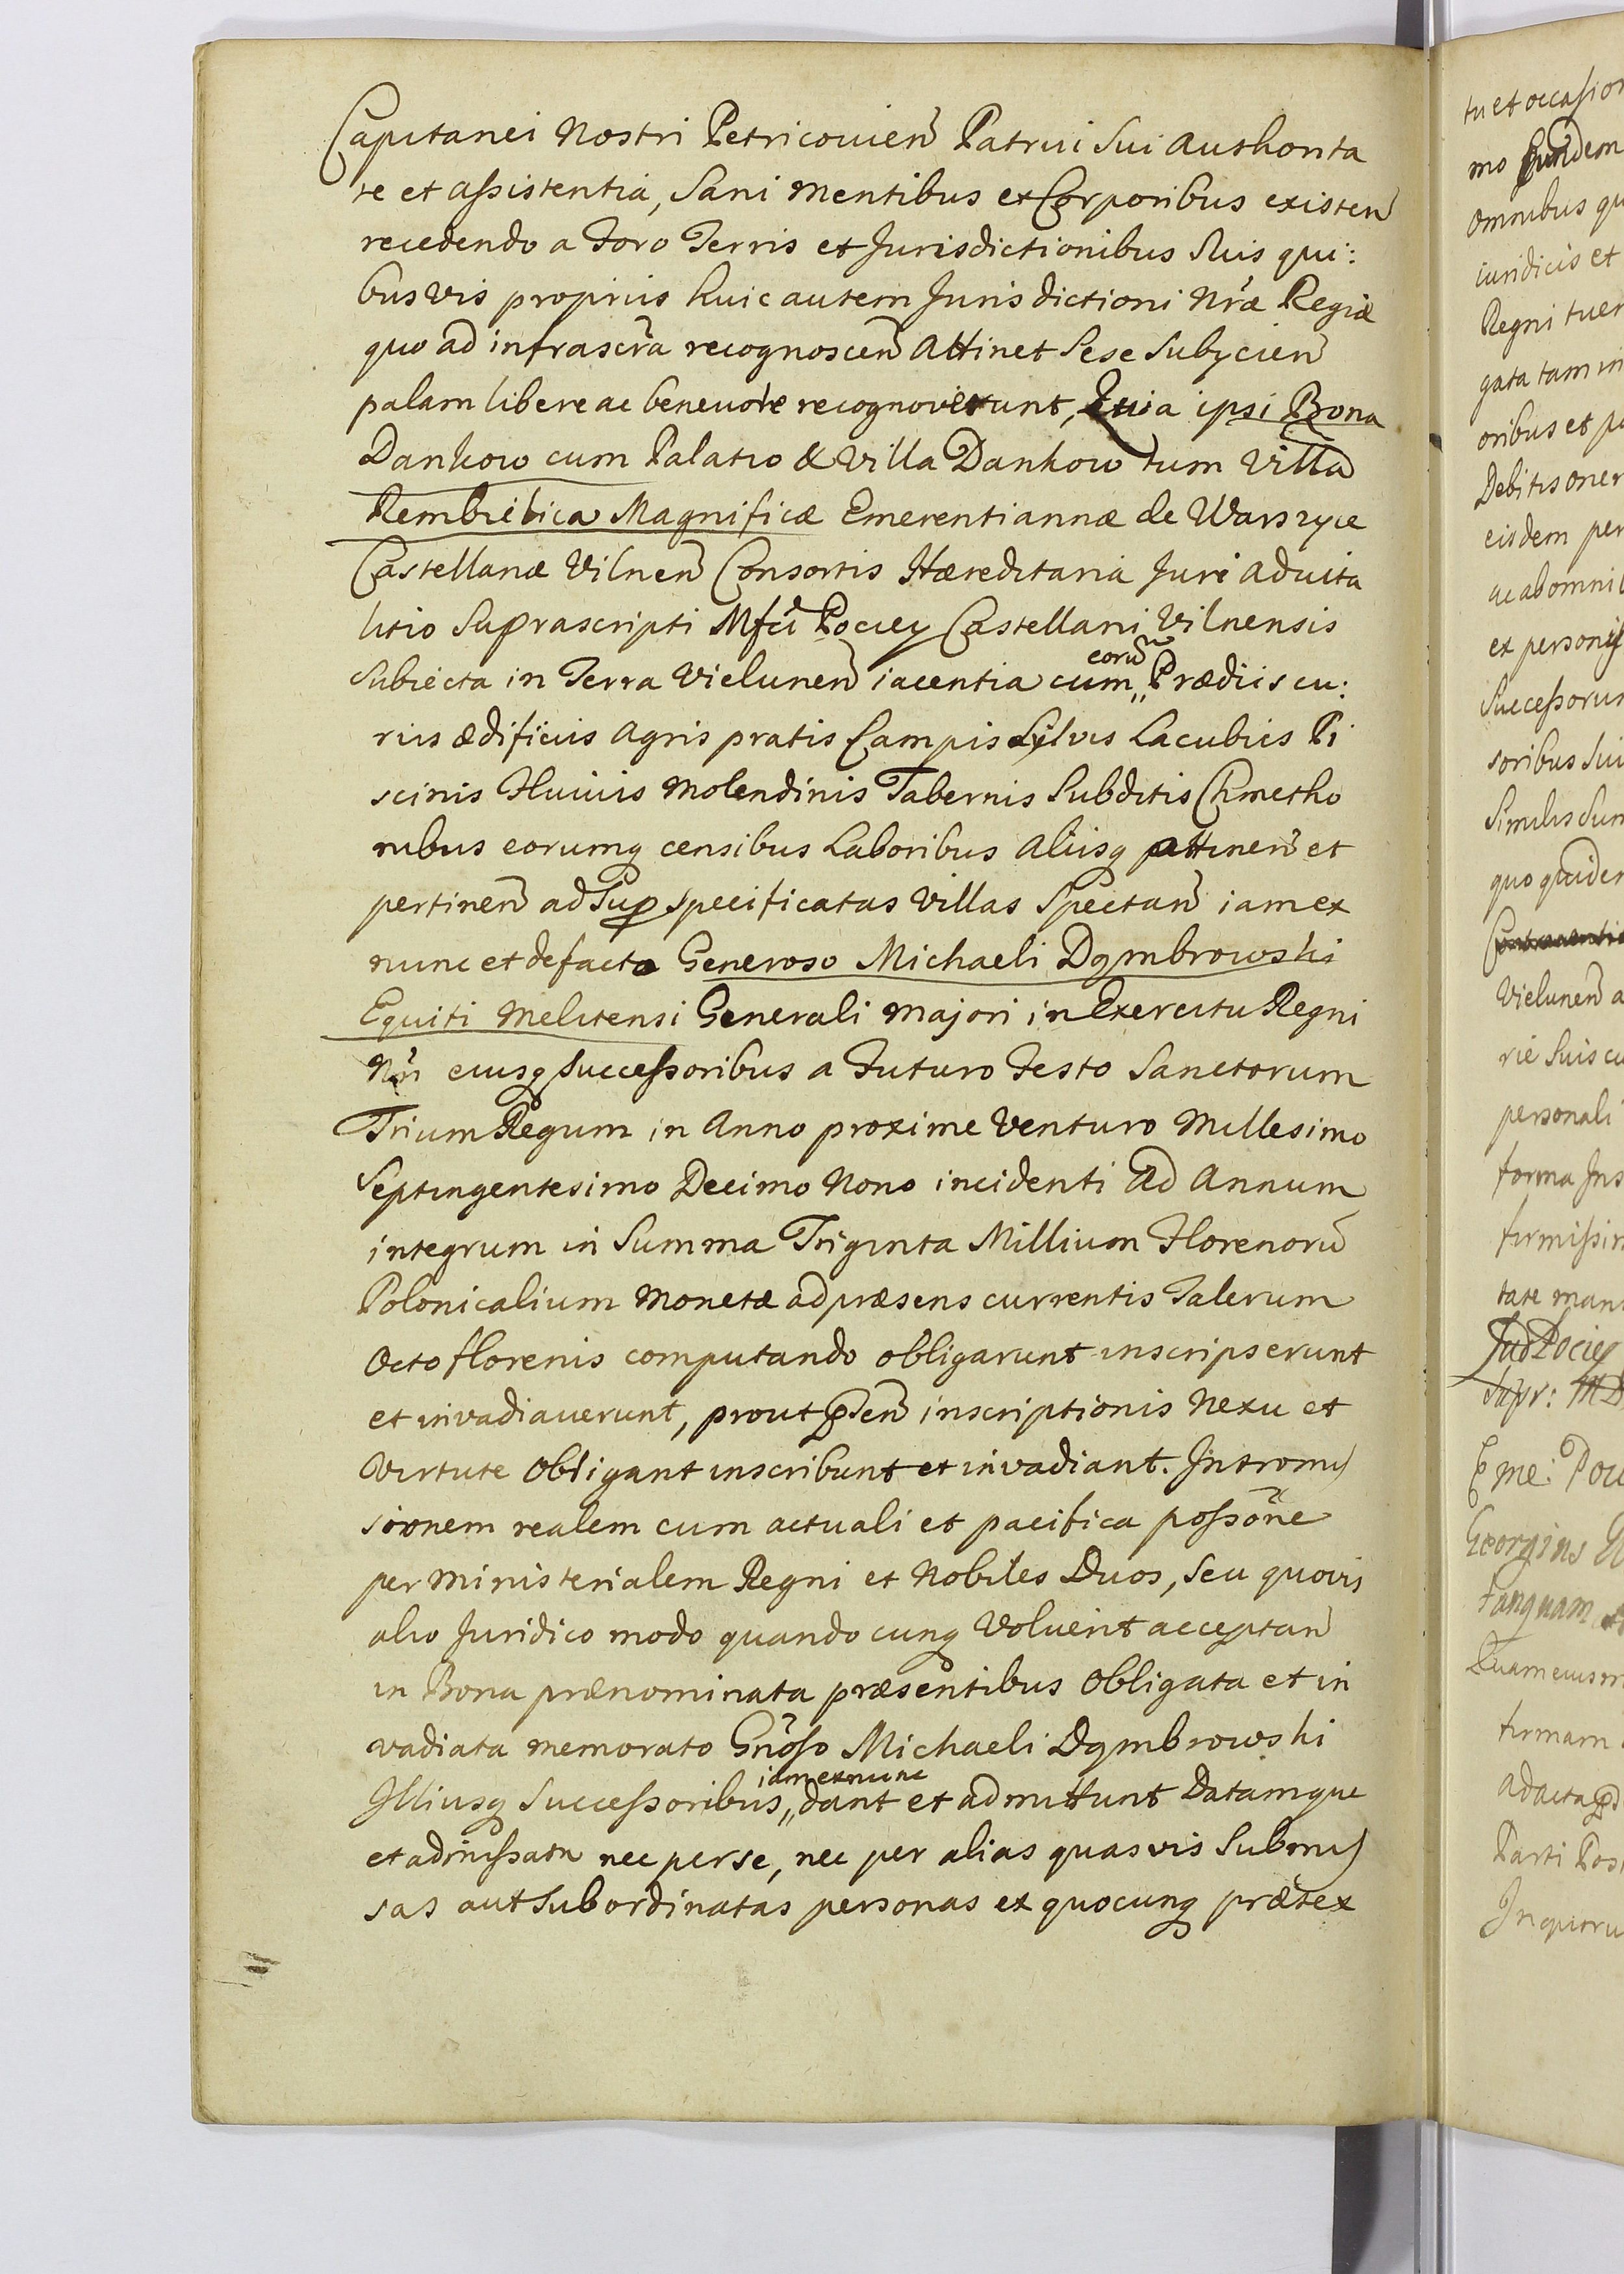 Capitanei Nostri Petricouien Patrui Sui Authorita
te et assistentia, Sani mentibus et Corporibus existen
recedendo a Foro Terris et Jurisdictionibus Suis qui:
busvis propriis huic autem Jurisdictioni Nrae Regiae
quo ad infrascra recognoscen Attinet Sese Subycien
palam libere ac beneuole recognoverunt, Quia ipsi Bona
Dankow cum Palatio & Villa Dankow tum Villa
Rembielica Magnificae Emerentiannae de Warszyce
Castellanae Vilnen Consortis Haereditaria Jure Aduita
litio Suprascripti Mfci Pociey Castellani Vilnensis
Subiecta in Terra Vielunen iacentia cum,, eorū Praediis cu:
riis aedificiis Agris pratis Campis Sylvis Lacubus Pi
scinis Fluuiis Molendinis Tabernis Subditis Kmetho
nibus eorumq censibus Laboribus Aliisq attinen et
pertinen ad Sup specificatas Villas Spectan iam ex
nunc et defacto Generoso Michaeli Dąmbrowski
Equiti Melitensi Generali Majori in Exercitu Regni
Nri eiusq Successoribus a Futuro Festo Sanctorum
Trium Regum in Anno proxime Venturo Millesimo
Septingentesimo Decimo Nono incidenti Ad Annum
integrum in Summa Triginta Millium Florenorū
Polonicalium Monetae ad praesens currentis Talerum
Octo florenis computando obligarunt inscripserunt
et invadiauerunt, prout psen inscriptionis Nexu et
Virtute Obligant inscribunt et invadiant. Intromis
sionem realem cum actuali et pacifica possone
per Ministerialem Regni et Nobiles Duos, Seu quovis
alio Juridico modo quandocunq Voluerit acceptan
in Bona praenominata praesentibus Obligata et in
vadiata memorato Gnoso Michaeli Dąmbrowski
Illiusq Successoribus,, iam ex nunc dant et admittunt Datamque
et admissam nec per se, nec per alias quasvis Submis
sas aut Subordinatas personas ex quocunq praetex
tu et occasion
mo Eundem
Omnibus qu
iuridicis et
Regni tuer
gata tam in
oribus et po
Debitis oner
eisdem per
ac ab omni
et personis
Successorum
soribus Sui
Similis Sum
quo quidem
Vielunen a
rie Suis cu
personali
forma Ins
firmissim
tate mani
Lud Pociey
supr: MD
Eme: Poci
Georgius
tanquam
Quam eiusm
firmam
Ad acta pd
Parti Pos
In quorum